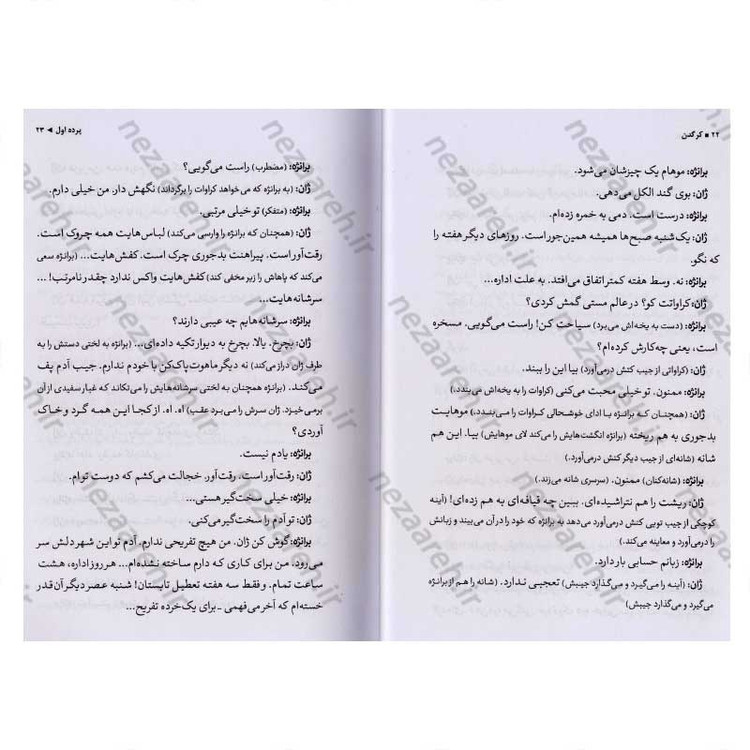 ۲۲ ■ کرگدن
برانژه: موهام یک چیزشان می‌شود.
ژان: بوی گند الکل می‌دهی.
برانژه: درست است. دمی به خمره زده‌ام.
ژان: یک‌شنبه صبح‌ها همیشه همین‌جور است. روزهای دیگر هفته را
که نگو.
برانژه: نه. وسط هفته کمتر اتفاق می‌افتد. به علت اداره...
ژان: کراواتت کو؟ در عالم مستی گمش کردی؟
برانژه: (دست به یخه‌اش می‌برد) سیاحت کن! راست می‌گویی. مسخره
است، یعنی چه‌کارش کرده‌ام؟
ژان: (کراواتی از جیب کتش درمی‌آورد) بیا این را ببند.
برانژه: ممنون. تو خیلی محبت می‌کنی (کراوات را به یخه‌اش می‌بندد.)
ژان: (همچنان که برانژه با ادای خوشحالی کراوات را می‌بندد.) موهایت
بدجوری به هم ریخته (برانژه انگشت‌هایش را می‌کند لای موهایش) بیا. این هم
شانه (شانه‌ای از جیب دیگر کتش درمی‌آورد.)
برانژه: (شانه‌کنان) ممنون. (سرسری شانه می‌زند.)
ژان: ریشت را هم نتراشیده‌ای. ببین چه قیافه‌ای به هم زده‌ای! (آینه
کوچکی از جیب تویی کتش درمی‌آورد می‌دهد به برانژه که خود را در آن می‌بیند و زبانش
را درمی‌آورد و معاینه می‌کند.)
برانژه: زبانم حسابی بار دارد.
ژان: (آینه را می‌گیرد و می‌گذارد جیبش) تعجبی ندارد. (شانه را هم از برانژه
می‌گیرد و می‌گذارد جیبش)
پرده اول ◄ ۲۳
برانژه: (مضطرب) راست می‌گویی؟
ژان: (به برانژه که می‌خواهد کراوات را برگرداند) نگهش دار. من خیلی دارم.
برانژه: (متفکر) تو خیلی مرتبی.
ژان: (همچنان که برانژه را وارسی می‌کند) لباس‌هایت همه چروک است.
رقت‌آور است. پیراهنت بدجوری چرک است. کفش‌هایت... (برانژه سعی
می‌کند که پاهاش را زیر مخفی کند) کفش‌هایت واکس ندارد چقدر نامرتب! ...
سرشانه‌هایت...
برانژه: سرشانه‌هایم چه عیبی دارند؟
ژان: بچرخ. یالا. بچرخ به دیوار تکیه داده‌ای... (برانژه به لختی دستش را به
طرف ژان دراز می‌کند) نه دیگر ماهوت پاک‌کن با خودم ندارم. جیب آدم پف
می‌کند. (برانژه همچنان به لختی سرشانه‌هایش را می‌تکاند که غبار سفیدی از آن
برمی خیزد. ژان سرش را می‌برد عقب) اه. اه. از کجا این همه گرد و خاک
آوردی؟
برانژه: یادم نیست.
ژان: رقت‌آور است. رقت‌آور. خجالت می‌کشم که دوست توام.
برانژه: خیلی سخت‌گیر هستی...
ژان: تو آدم را سخت‌گیر می‌کنی.
برانژه: گوش کن ژان. من هیچ تفریحی ندارم. آدم تو این شهر دلش سر
می‌رود. من برای کاری که دارم ساخته نشده‌ام... هر روز اداره، هشت
ساعت تمام. و فقط سه هفته تعطیل تابستان! شنبه عصر دیگر آن‌قدر
خسته‌ام که آخر می‌فهمی ـ برای یک خرده تفریح...
nezaareh.ir
nezaareh.ir
nezaareh.ir
nezaareh.ir
nezaareh.ir
nezaareh.ir
nezaareh.ir
nezaareh.ir